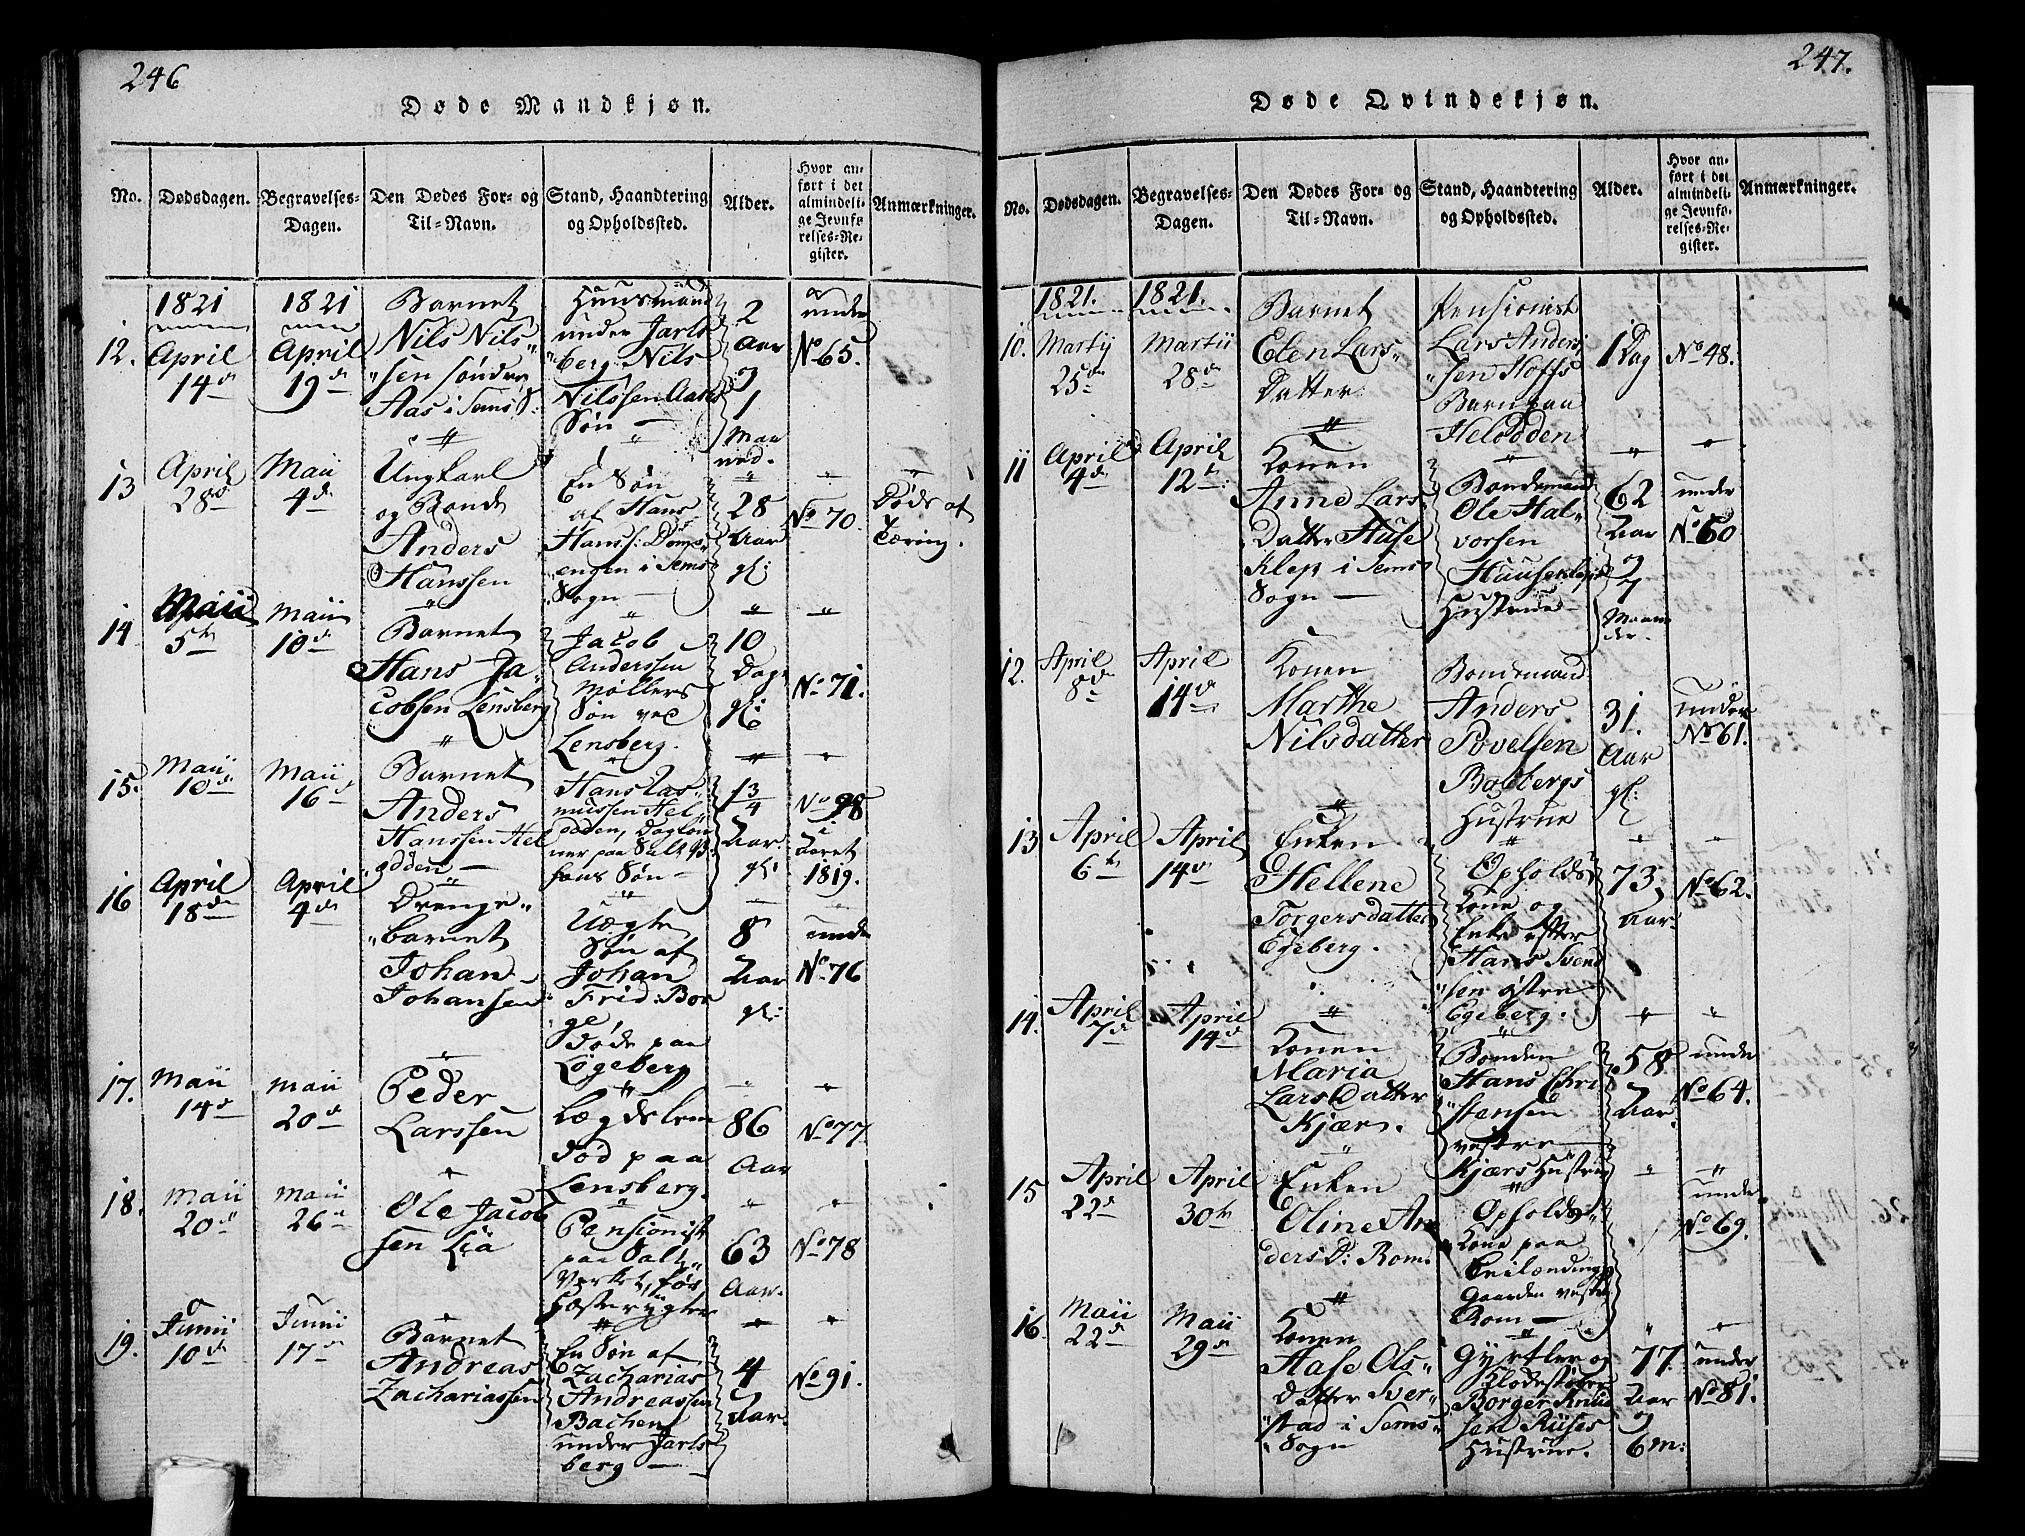 246
Døde Mandkjøn.
No.
Dødsdagen.
Begravelses-
Dagen.
Den Dødes For- og
Til-Navn.
Stand, Haandtering
og Opholdssted.
Alder.
Hvor an-
ført i det
almindeli-
ge Jevnfø-
relses-Re-
gister.
Anmærkninger.
12.
1821
April
14d
1821
April
19d
Barnet
Nils Nils-
sen søndre
Aas i Sems S:
Huusmand
under Jarls
berg Nils
Nilssen Aases
Søn
2
Aar
og
1
Maa
ned.
under
No 65.
13
April
28d
Maii
4d
Ungkarl
og Bonde
Anders
Hanssen
En Søn
af Hans
Hanss:
engen i Sems
Sogn
28
Aar
gl:
No 70.
Døde af
Tæring.
14
Maii
5t
Maii
10d
Barnet
Hans Ja-
cobsen Lensberg
Jacob
Anderssen
Møllers
Søn ved
Lensberg.
10
Dage
gl:
No 71.
15.
Maii
10d
Maii
16d
Barnet
Anders
Hanssen Hel
odden
Hans Ras-
mussen Hel
odden, Dagløn
ner paa
hans Søn
1 3/4
Aar
gl:
No 98
i
Aaret
1819.
16
April
18de
April
4de
Drenge-
barnet
Johan
Johansen
Uægte
Søn af
Johan
Frid: Bor
ge
Døde paa
Løgeberg
8
Aar
gl:
under
No 76
17.
Maii
14d
Maii
20d
Peder
Larssen
Lægdslem
Død paa
Lensberg.
86
Aar
No 77.
18.
Maii
20d
Maii
26d
Ole Jacob
sen Liä
Pensionist
paa Salt-
Verket,
63
Aar.
No 78
19.
Junii
10de
Junii
17d
Barnet
Andreas
Zachariassen
En Søn af
Zacharias
Andreassen
Bachen
under Jarls
berg
4
Aar.
No 91.
247.
Døde Qvindekjøn.
No.
Dødsdagen.
Begravelses-
Dagen.
Den Dødes For- og
Til-Navn.
Stand, Haandtering
og Opholdssted.
Alder.
Hvor an-
ført i det
almindeli-
ge Jevnfø-
relses-Re-
gister.
Anmærkninger.
10.
1821.
Martij
25de
1821.
Martii
28d
Barnet
Elen Lars-
Datter
Pensionist
Lars Anders
sen Hoffs
Barn paa
Helodden
1 Dag
No 48.
11
April
4d
April
12t:
Konen
Anne Lars
Datter Huse
Klep i Sems
Sogn
Bondemand
Ole Hal-
vorsen
Huuseklep
Hustrue
62
Aar
og
7
Maane
der
under
No 60
12.
April
8d
April
14d
Konen
Marthe
Nilsdatter
Bondemand
Anders
Povelsen
Bolbergs
Hustrue
31.
Aar
gl:
under
No 61.
13
April
6t
April
14d
Enken
Hellene
Torgersdatter
Egeberg.
Opholds
Kone og
Enke efter
Hans Svend
sen østre
Egeberg.
73
Aar
No 62.
14.
April
7d
April
14d
Konen
Maria
Lars Datter
Kjær.
Bonden
Hans Chri
stensen
vestre
Kjærs Hustrue
58
Aar
under
No 64.
15
April
22d
April
30t
Enken
Oline An
ders D: Rom.
Opholds
Kone paa
Gaarden vestre
Rom
under
No 69.
16
Maii
22d
Maii
29d
Konen
Aase Ols-
Datter Sver-
stad i Sems
Sogn
Gyrtler og
Borger
sen Riises
Hustrue.
77
Aar
og
6 m:
under
No 81.